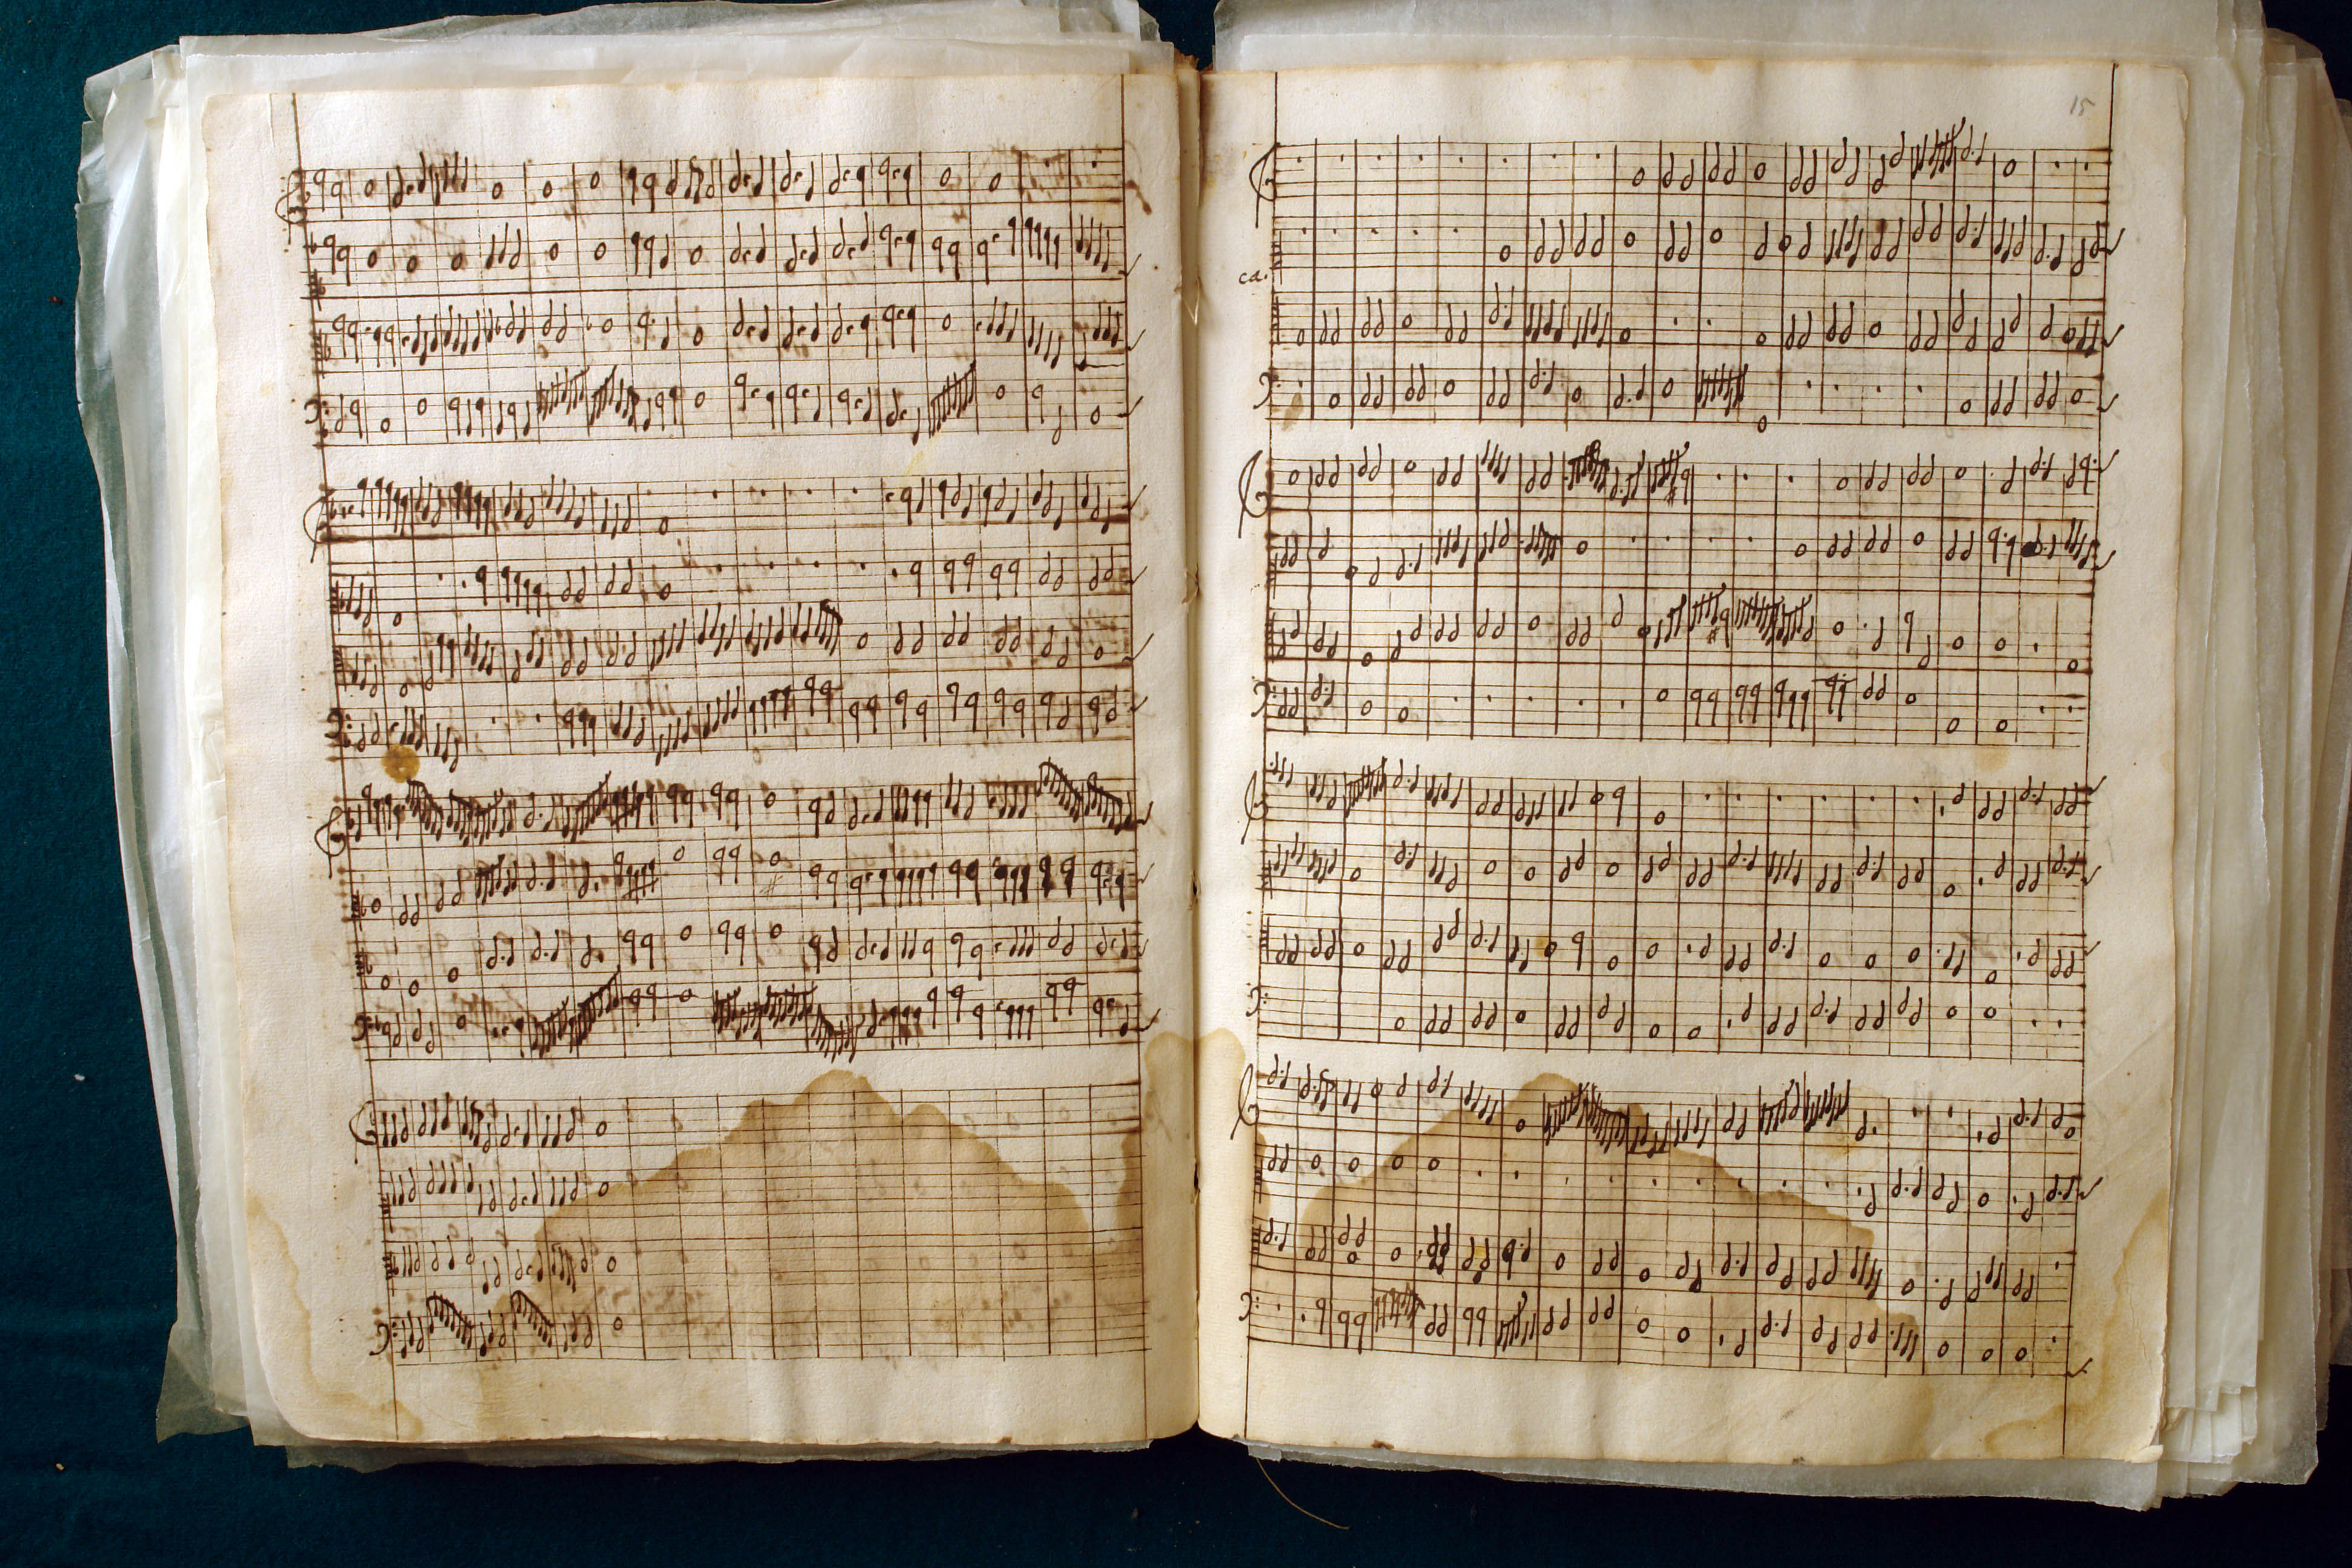 15
ca.